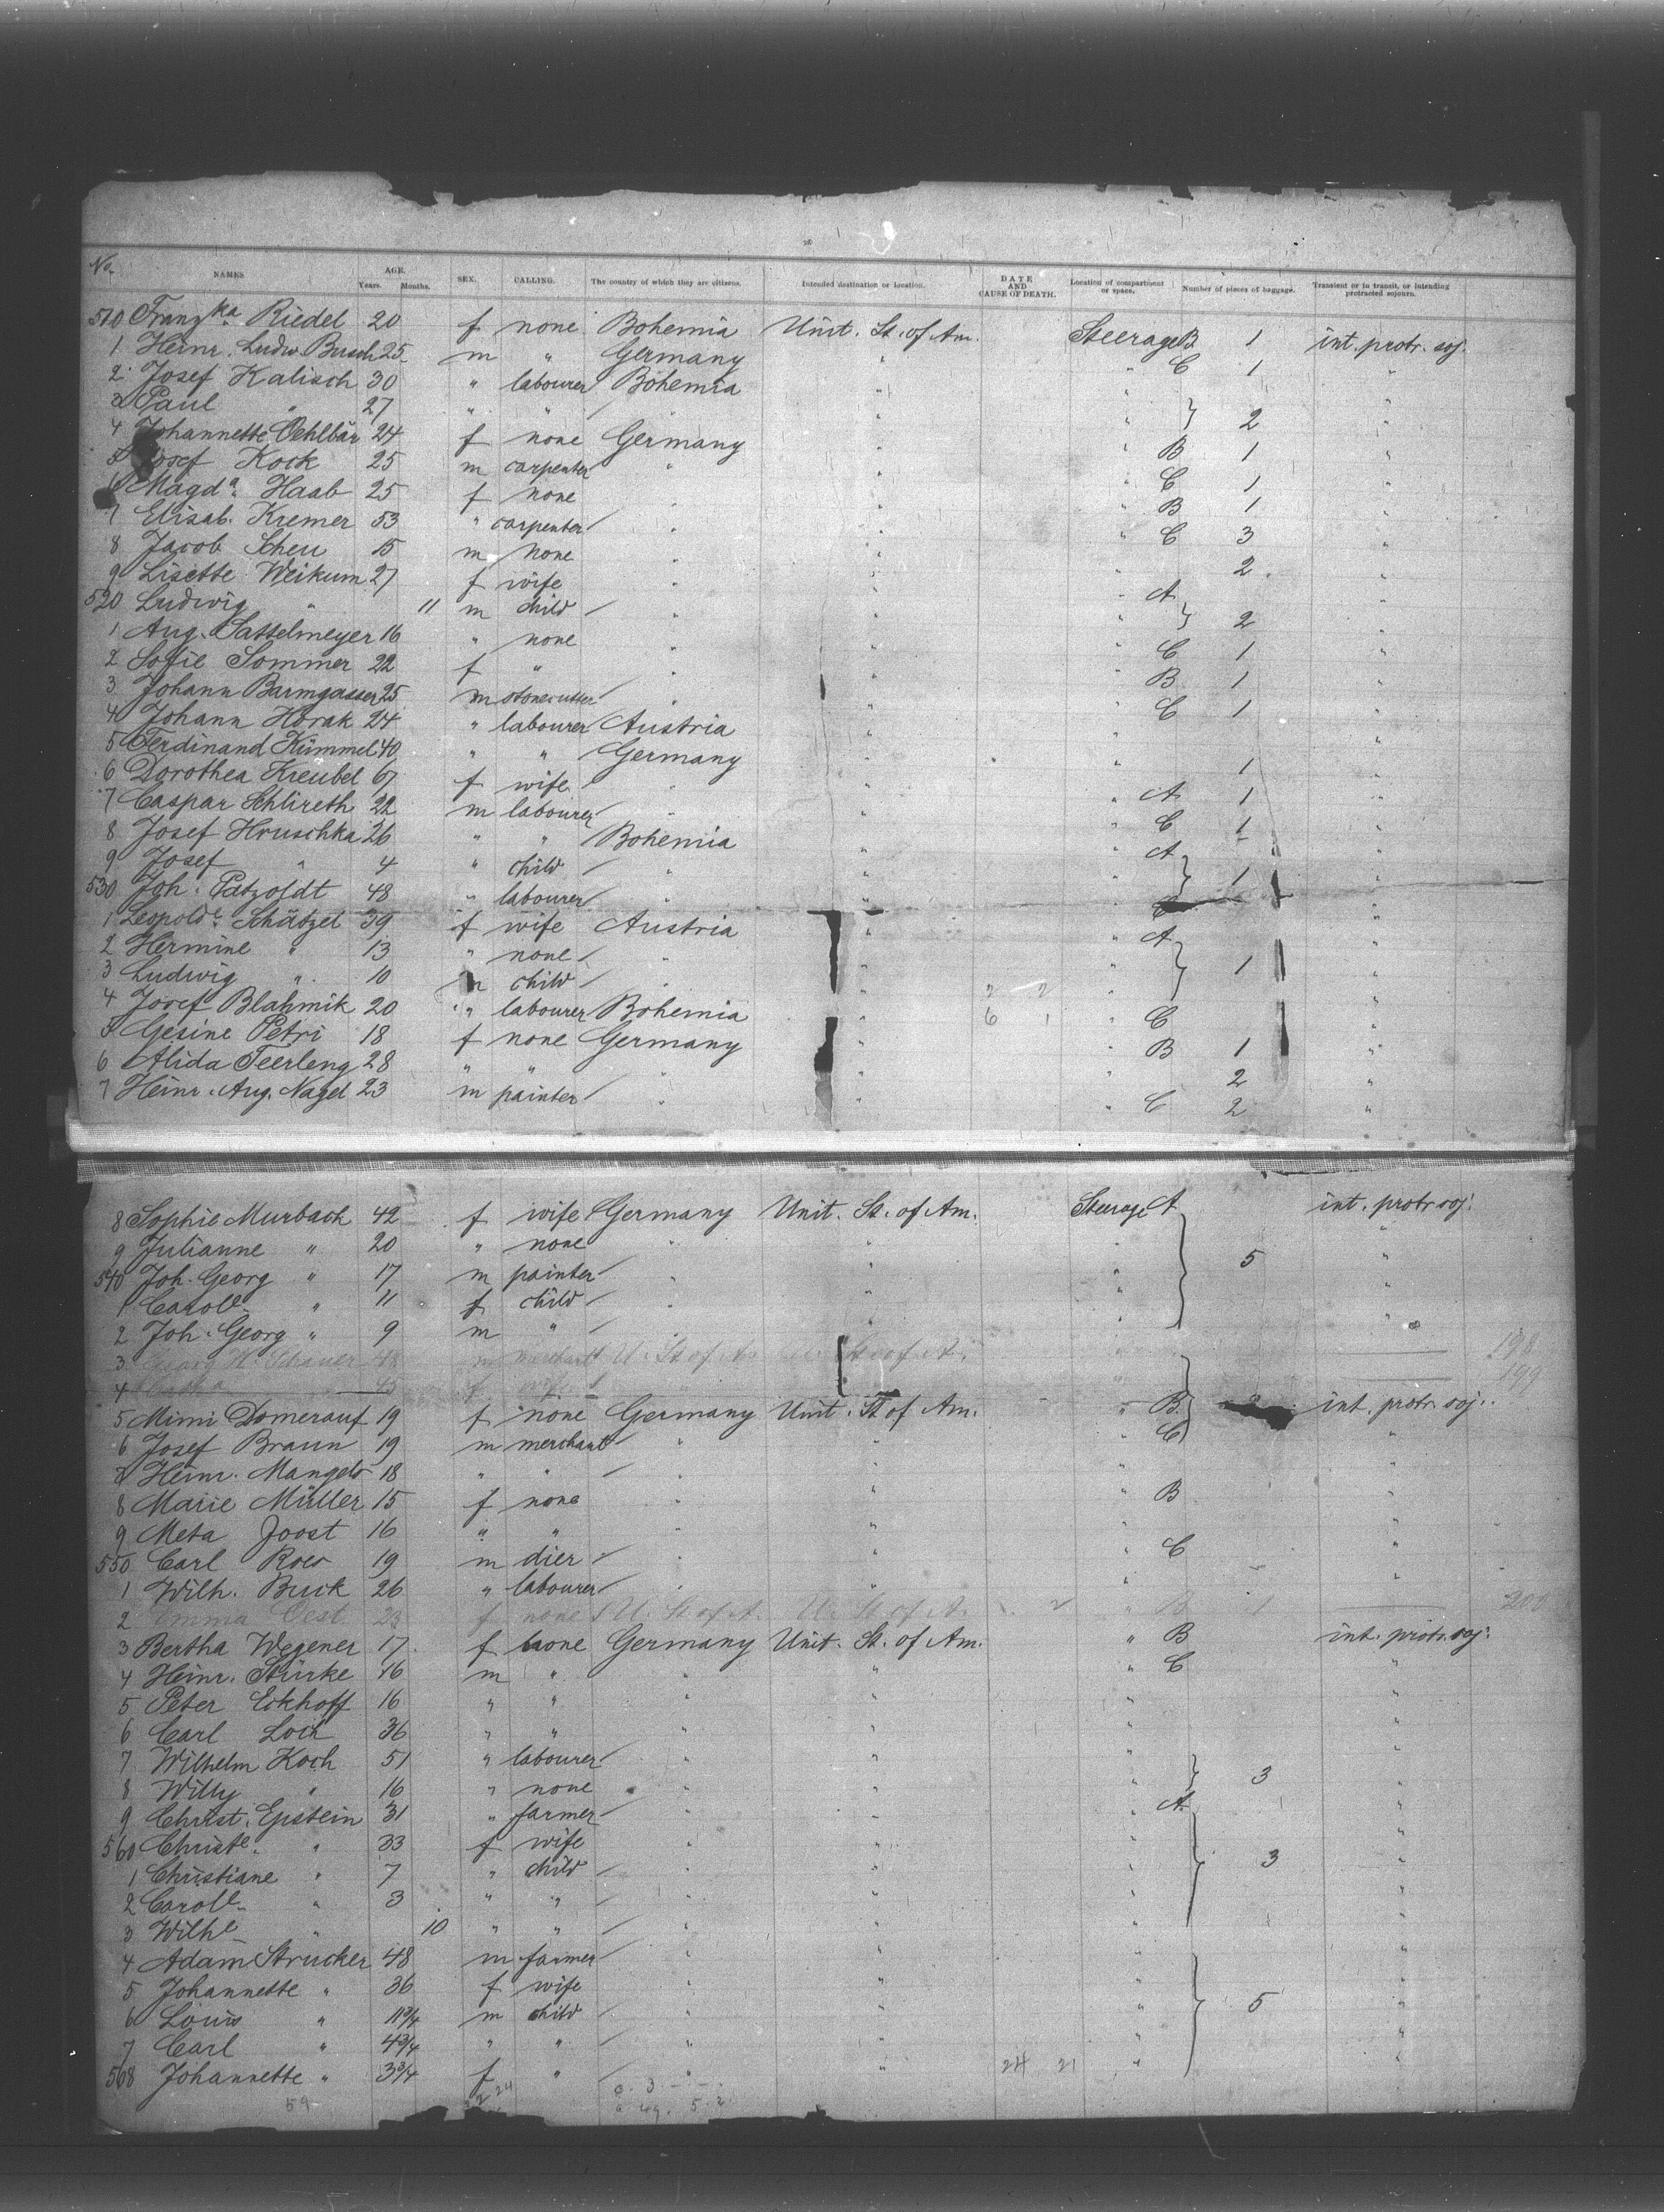 No. NAMES AGE. Years. Months. SEX. CALLING. The country of which they are citizens. Intended destination or location. DATE AND CAUSE OF DEATH. Location of compartment or space. Number of pieces of baggage. Transient or in transit, or intending protracted sojourn.
510 Franzka Riedel 20 f none Bohemia Unit. St. of Am. Steerage B 1 int. protr. soj.
1 Heinr. Ludw. Busch 25 m " Germany " " C 1 "
2 Josef Kalisch 30 " labourer Bohemia " "
3 Paul " 27 " " " " " } 2 "
4 Johannette Oehlbär 24 f none Germany " " B 1 "
5 Josef Kock 25 m carpenter " " " C 1 "
6 Magda. Haab 25 f none " " " B 1 "
7 Elisab. Kremer 53 " carpenter " " " C 3 "
8 Jacob Scheu 15 m none " " " 2 "
9 Lisette Weikum 27 f wife " " " A "
520 Ludwig " 11 m child " " " } 2 "
1 Aug. Sattelmeyer 16 " none " " " C 1 "
2 Sofie Sommer 22 f " " " " B 1 "
3 Johann Barmgasser 25 m stonecutter " " " C 1 "
4 Johann Horak 24 " labourer Austria " " "
5 Ferdinand Kümmel 40 " " Germany " " 1 "
6 Dorothea Kreubel 67 f wife " " " A 1 "
7 Caspar Schlireth 22 m labourer " " " C 1 "
8 Josef Hruschka 26 " " Bohemia " " A "
9 Josef " 4 " child " " " } 1 "
530 Joh. Patzoldt 48 " labourer " " "
1 Leopolde. Schätzel 39 f wife Austria " " A "
2 Hermine " 13 " none " " " } 1 "
3 Ludwig " 10 m child " " 2 2 " "
4 Josef Blahmik 20 " labourer Bohemia " 6 1 " C "
5 Gesine Petri 18 f none Germany " " B 1 "
6 Alida Teerleng 28 " " " " " 2 "
7 Heinr. Aug. Nagel 23 m painter " " " C 2 "
8 Sophie Murbach 42 f wife Germany Unit. St. of Am. Steerage A int. protr. soj.
9 Julianne " 20 " none " " " } 5 "
540 Joh. Georg " 17 m painter " " " "
1 Carole. " 11 f child " " " "
2 Joh. Georg " 9 m " " " " "
3 Georg H. Schauer 48 m merchant U. St. of A. St. of A. 198
4 45 f wife 199
5 Mimi Domerauf 19 f none Germany Unit. St. of Am. " B int. protr. soj.
6 Josef Braun 19 m merchant " " " C "
7 Heinr. Mangels 18 " " " " " "
8 Marie Müller 15 f none " " " B "
9 Meta Joost 16 " " " " "
550 Carl Roes 19 m dier " " " C "
1 Wilh. Buck 26 " labourer " " " "
2 Emma Oest 23 f none U. St. of A. U. St. of A. " B 1 200
3 Bertha Wegener 17 f none Germany Unit. St. of Am. " B int. protr. soj.
4 Heinr. Stürke 16 m " " " " C "
5 Peter Eckhoff 16 " " " " " "
6 Carl Loch 36 " " " " " "
7 Wilhelm Koch 51 " labourer " " "
8 Willy " 16 " none " " " } 3 "
9 Christ. Epstein 31 " farmer " " " A "
560 Christe. " 33 f wife " " " "
1 Christiane " 7 " child " " " } 3 "
2 Carole. " 3 " " " " " "
3 Wilhe " 10 " " " " " "
4 Adam Strucker 48 m farmer " " " "
5 Johannette " 36 f wife " " " "
6 Louis " 11 3/4 m child " " " } 5 "
7 Carl " 4 3/4 " " " " " "
568 Johannette " 3 3/4 f " " " 24 21 " "
59